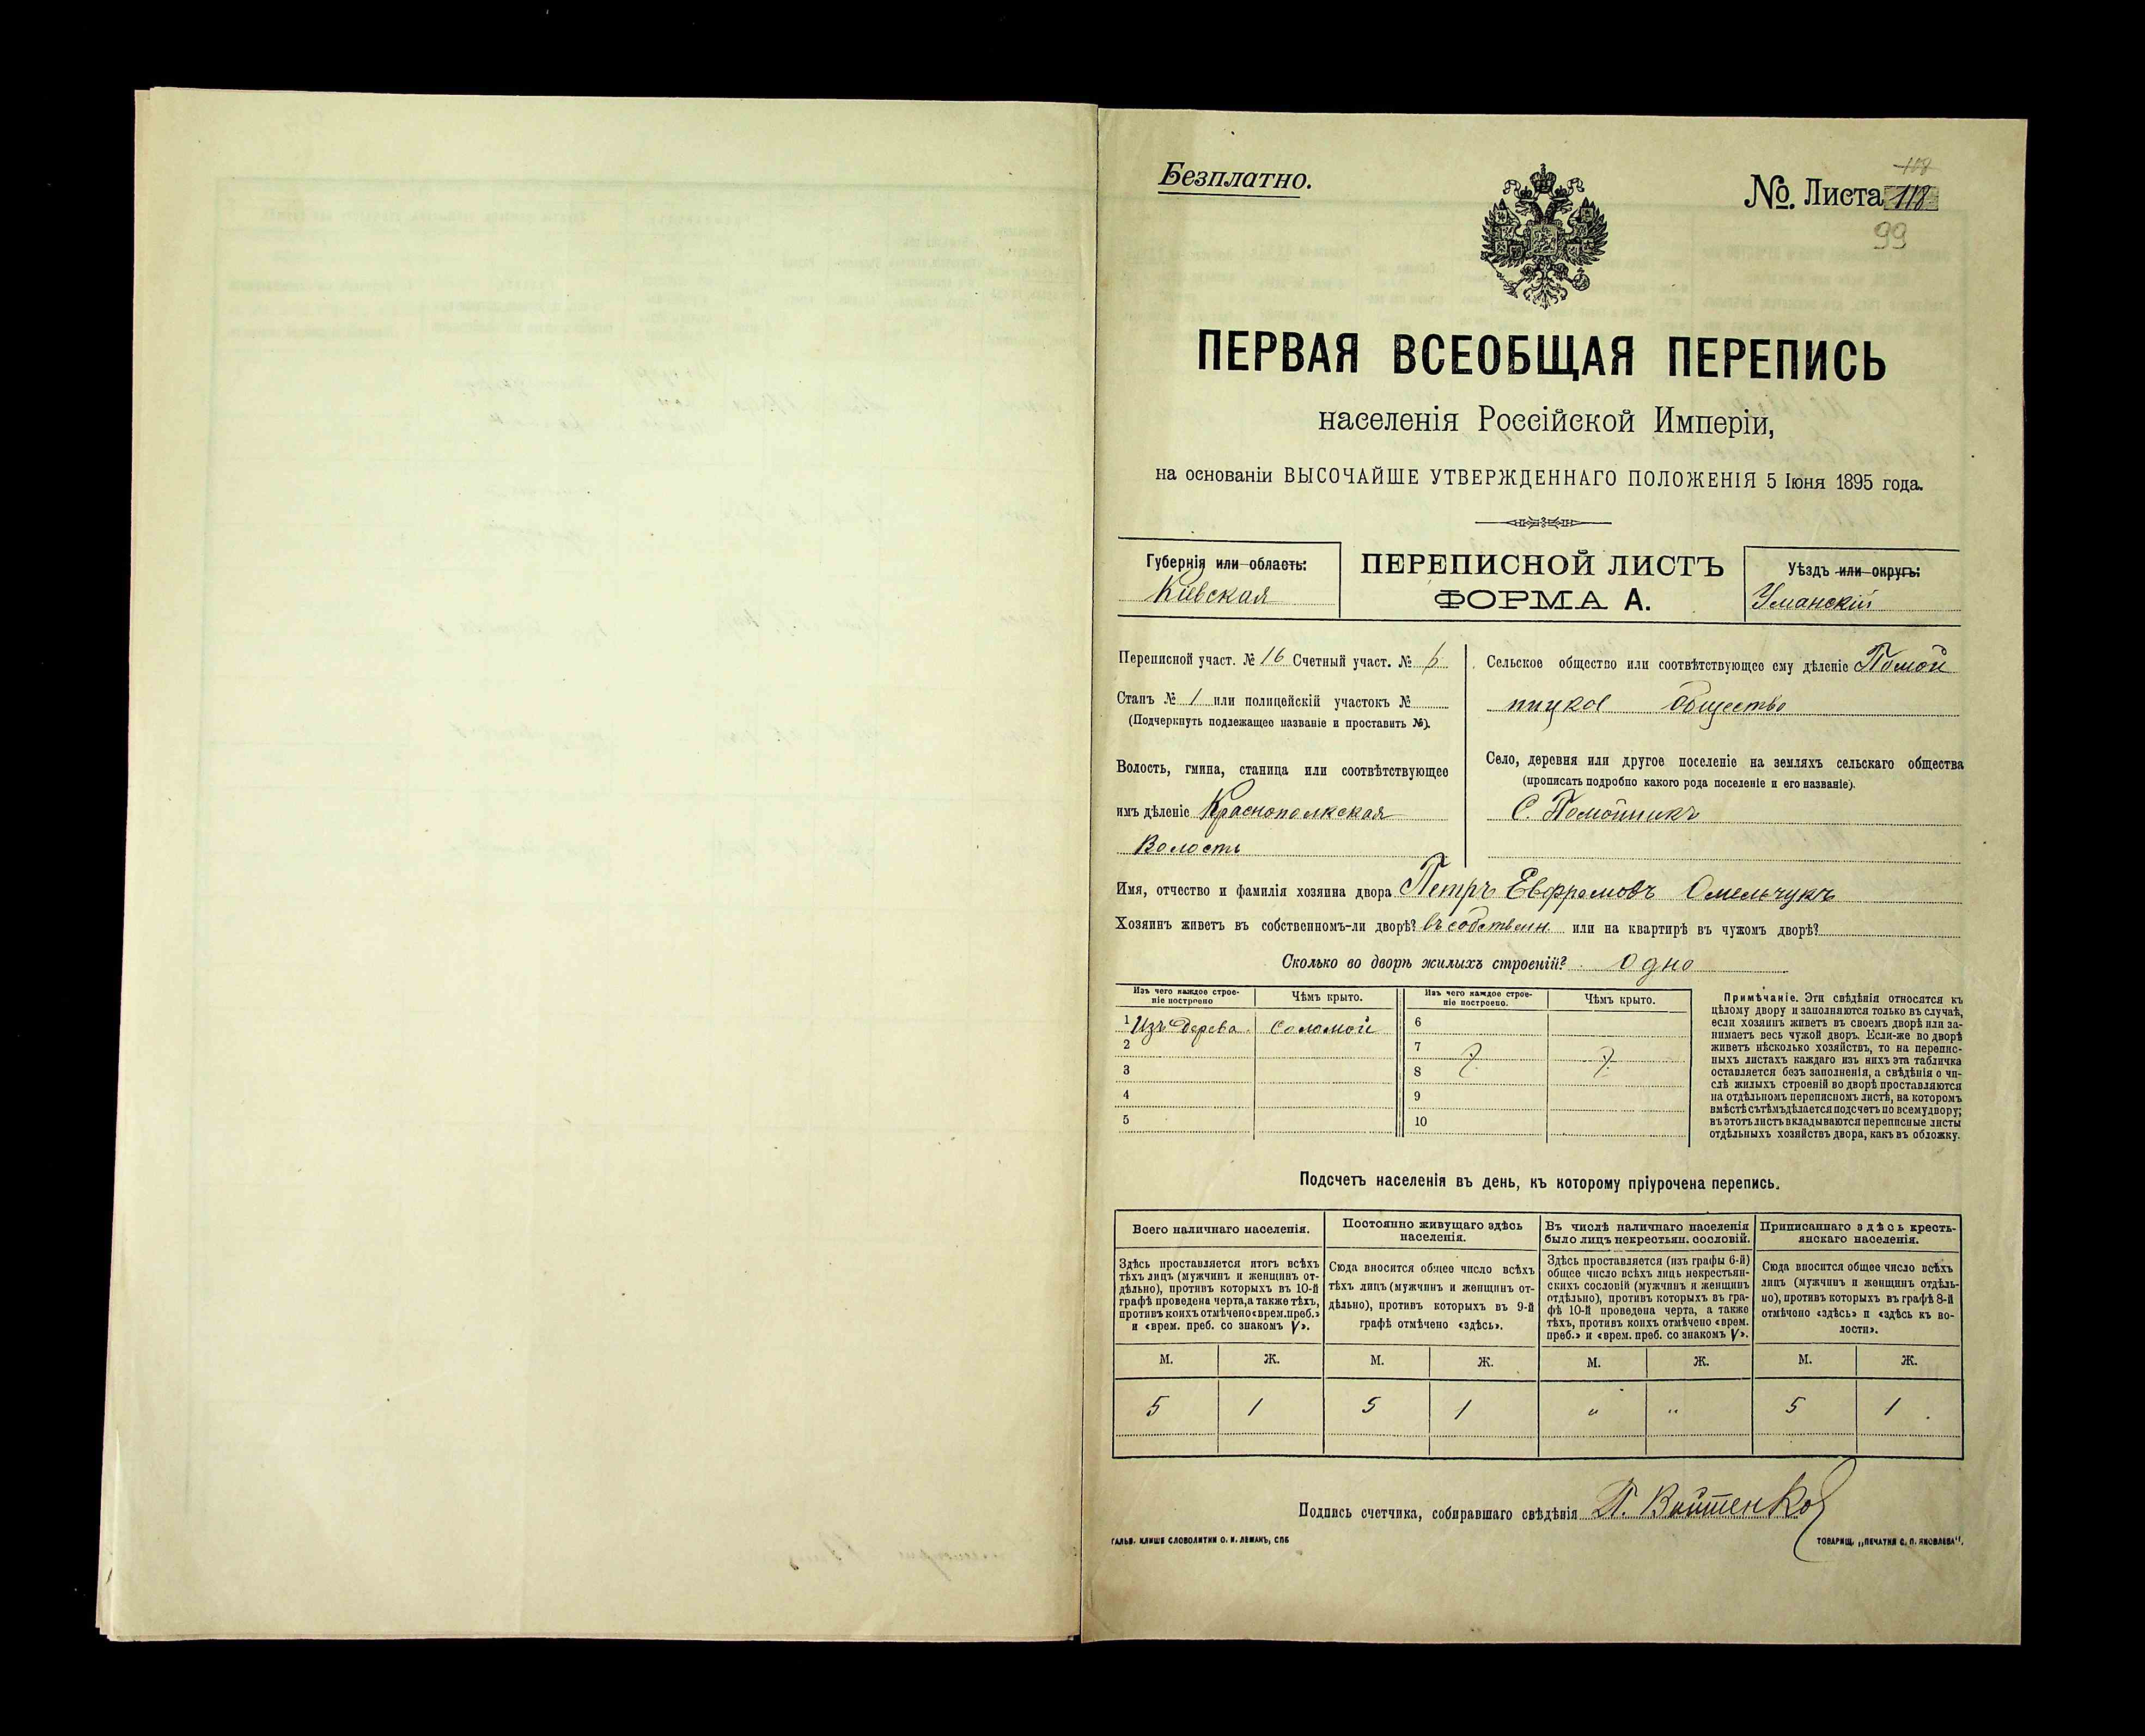 Безплатно.
118
№. Листа 118
99
ПЕРВАЯ ВСЕОБЩАЯ ПЕРЕПИСЬ
населенія Россійской Имперіи,
на основаніи ВЫСОЧАЙШЕ УТВЕРЖДЕННАГО ПОЛОЖЕНІЯ 5 Іюня 1895 года.
Губернія или область:
Кіевская
ПЕРЕПИСНОЙ ЛИСТЪ
ФОРМА А.
Уѣздъ или округъ:
Уманскій
Переписной участ. № 16 Счетный участ. № 6
Станъ № 1 или полицейскій участокъ №
(Подчеркнуть подлежащее названіе и проставить №).
Волость, гмина, станица или соотвѣтствующее
имъ дѣленіе Краснополкская
Волость
Сельское общество или соотвѣтствующее ему дѣленіе Помой
ницкое общество
Село, деревня или другое поселеніе на земляхъ сельскаго общества
(прописать подробно какого рода поселеніе и его названіе).
С. Помойникъ
Имя, отчество и фамилія хозяина двора Петръ Евфремовъ Омельчукъ
Хозяинъ живетъ въ собственномъ-ли дворѣ? въ собствен. или на квартирѣ въ чужомъ дворѣ?
Сколько во дворѣ жилыхъ строеній? Одно
Изъ чего каждое строе-
ніе построено
Чѣмъ крыто.
Изъ чего каждое строе-
ніе построено.
Чѣмъ крыто.
1 Изъ дерева. Соломой
2
3
4
5
6
7
8
9
10
Примѣчаніе. Эти свѣдѣнія относятся къ
цѣлому двору и заполняются только въ случаѣ,
если хозяинъ живетъ въ своемъ дворѣ или за-
нимаетъ весь чужой дворъ. Если-же во дворѣ
живетъ нѣсколько хозяйствъ, то на перепис-
ныхъ листахъ каждаго изъ нихъ эта табличка
оставляется безъ заполненія, а свѣдѣнія о чи-
слѣ жилыхъ строеній во дворѣ проставляются
на отдѣльномъ переписномъ листѣ, на которомъ
вмѣстѣ съ тѣмъ дѣлается подсчетъ по всему двору;
въ этотъ листъ вкладываются переписные листы
отдѣльныхъ хозяйствъ двора, какъ въ обложку.
Подсчетъ населенія въ день, къ которому пріурочена перепись.
Всего наличнаго населенія.
Здѣсь проставляется итогъ всѣхъ
тѣхъ лицъ (мужчинъ и женщинъ от-
дѣльно), противъ которыхъ въ 10-й
графѣ проведена черта, а также тѣхъ,
противъ коихъ отмѣчено «врем. преб.»
и «врем. преб. со знакомъ V».
Постоянно живущаго здѣсь
населенія.
Сюда вносится общее число всѣхъ
тѣхъ лицъ (мужчинъ и женщинъ от-
дѣльно), противъ которыхъ въ 9-й
графѣ отмѣчено «здѣсь».
Въ числѣ наличнаго населенія
было лицъ некрестьян. сословій.
Здѣсь проставляется (изъ графы 6-й)
общее число всѣхъ лицъ некрестьян-
скихъ сословій (мужчинъ и женщинъ
отдѣльно), противъ которыхъ въ гра-
фѣ 10-й проведена черта, а также
тѣхъ, противъ коихъ отмѣчено «врем.
преб.» и «врем. преб. со знакомъ V».
Приписаннаго здѣсь кресть-
янскаго населенія.
Сюда вносится общее число всѣхъ
лицъ (мужчинъ и женщинъ отдѣль-
но), противъ которыхъ въ графѣ 8-й
отмѣчено «здѣсь» и «здѣсь къ во-
лости».
М. Ж. М. Ж. М. Ж. М. Ж.
5 1 5 1 " " 5 1
Подпись счетчика, собиравшаго свѣдѣнія П. Войтенко
ГАЛЬВ. КЛИШЕ СЛОВОЛИТНИ О. И. ЛЕМАНЪ, СПБ
ТОВАРИЩ. „ПЕЧАТНЯ С. П. ЯКОВЛЕВА".